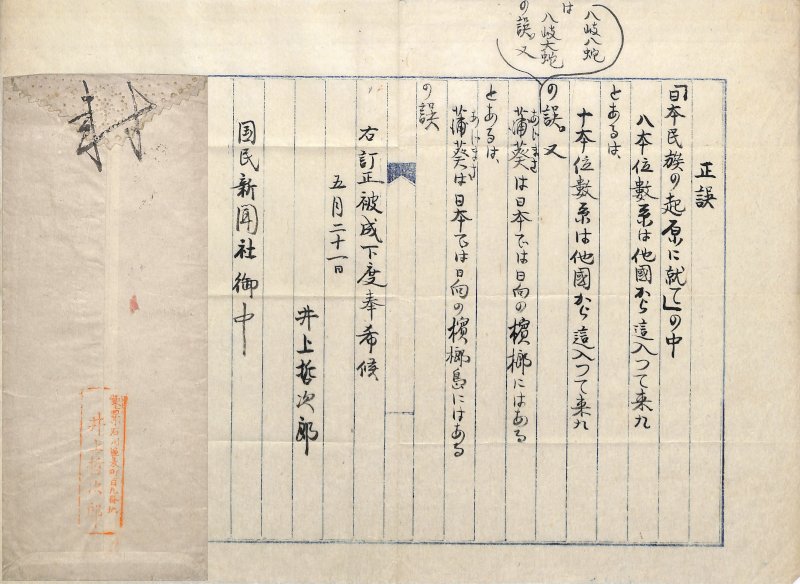 正誤
「日本民族の起原に就て」の中
八本位數系は他國から這入つて来九
とあるは、
十本位數系は他國から這入つて来九
の誤。又
八岐八蛇
は
八岐大蛇
の誤。又
あぢまさ
蒲葵は日本では日向の檳榔にはある
とあるは、
あぢまさ
蒲葵は日本では日向の檳榔島にはある
の誤
右訂正被成下度奉希候
五月二十一日
井上哲次郎
国民新聞社御中
井上哲次郎